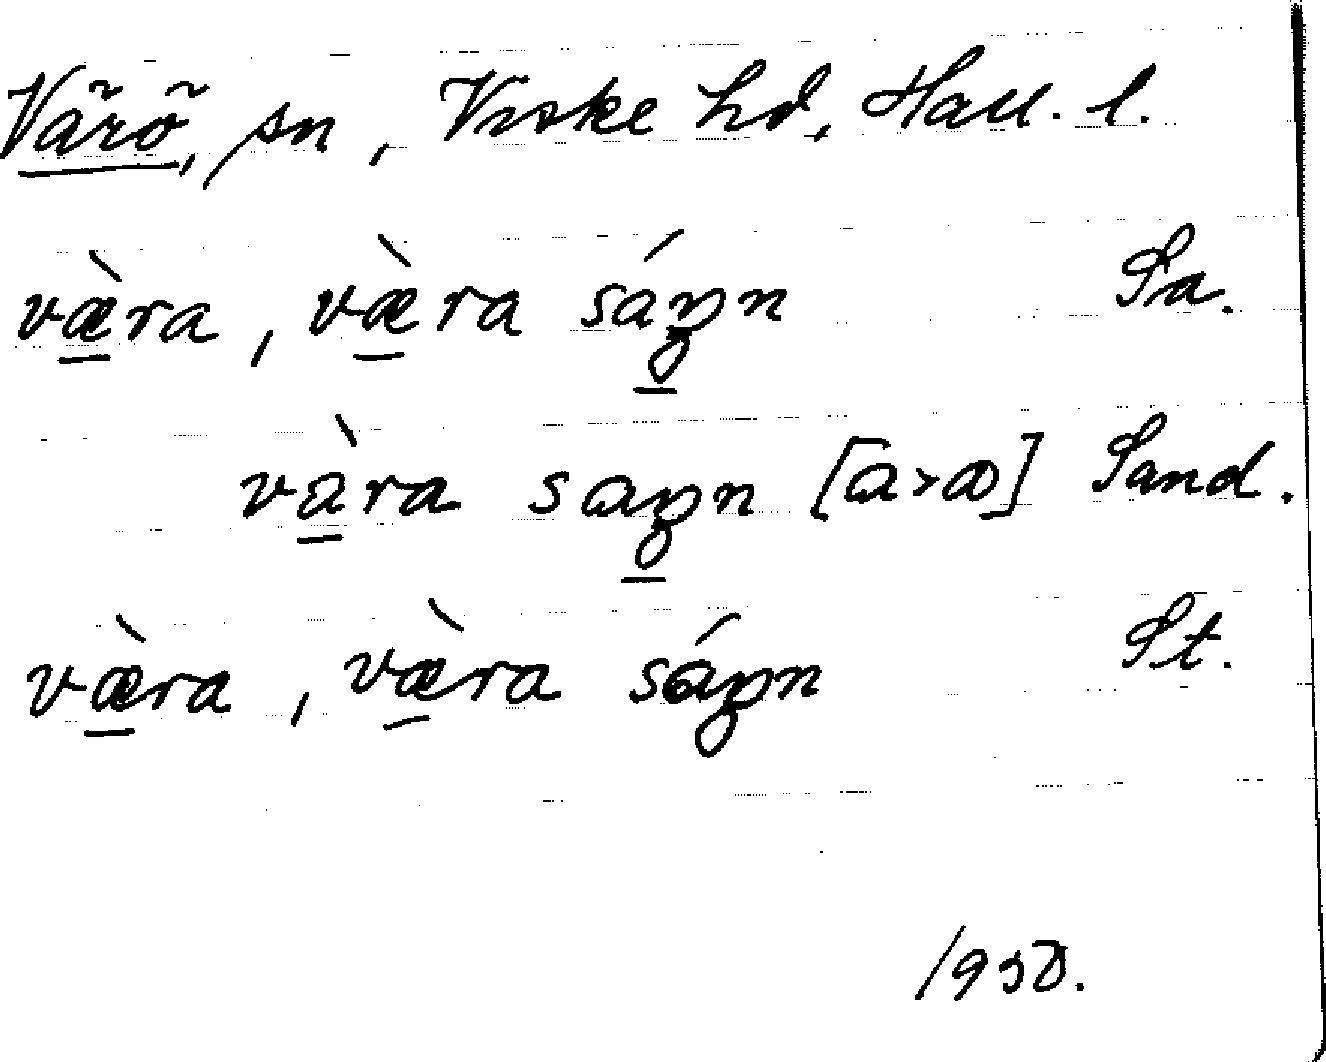 Värö, sn, Viske hd, Hall. l.
væ̀ra, væ̀ra sáŋn Sa.
vàra saŋn [a>ɷ] Sand.
væ̀ra, væ̀ra sáŋn St.